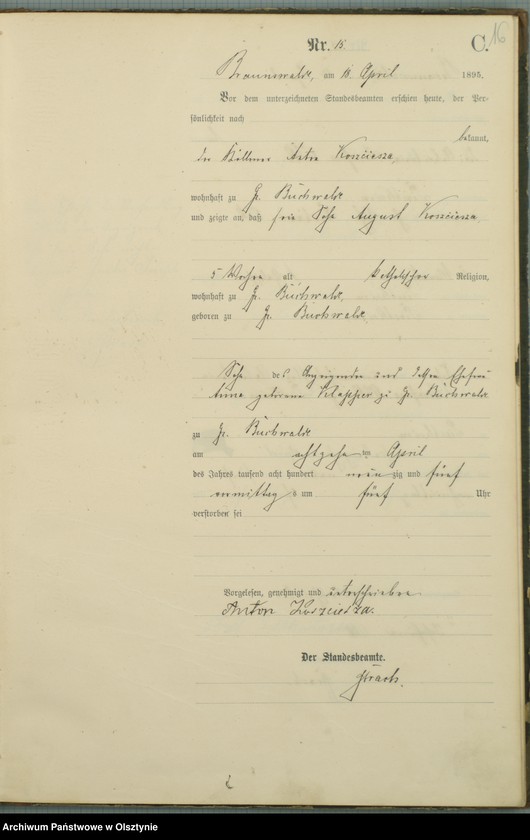 16
Nr. 15.
C.
Braunswalde, am 18. April 1895.
Vor dem unterzeichneten Standesbeamten erschien heute, der Per-
sönlichkeit nach
bekannt,
der Anton Kosciesza,
wohnhaft zu Gr. Buchwalde
und zeigte an, daß sein Sohn August Kosciesza,
5 Wochen alt katholischer Religion,
wohnhaft zu Gr. Buchwalde,
geboren zu Gr. Buchwalde,
Sohn des Anzeigenden und dessen Ehefrau
Anna geborene zu Gr. Buchwalde
zu Gr. Buchwalde
am achtzehnten April
des Jahres tausend acht hundert neunzig und fünf
vormittags um fünf Uhr
verstorben sei
Vorgelesen, genehmigt und unterschrieben
Anton Kosciesza.
Der Standesbeamte.
Archiwum Państwowe w Olsztynie